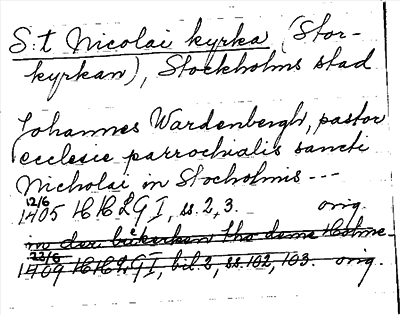 S:t Nicolai kyrka (Stor-
kyrkan), Stockholms stad
Johannes Wardenbergh, pastor
ecclesie parrochialis sancti
Nicholai in Stocholmis ---
12/6
1405 HHLG I, ss. 2, 3. orig.
in der bükerken tho deme Holme.
23/6
1409 HHLG I, bil. 3, ss. 102, 103. orig.